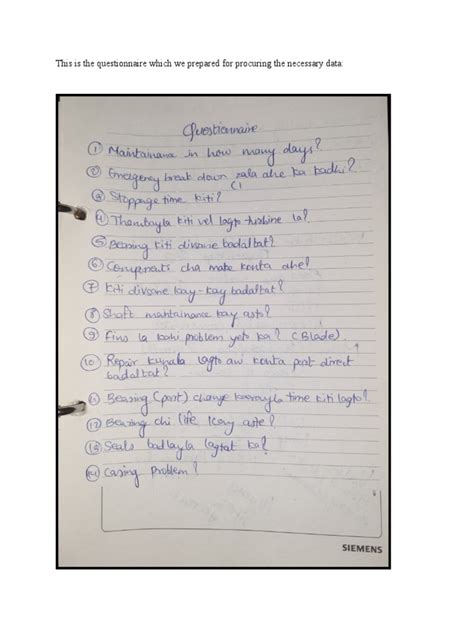 This is the questionnaire which we prepared for procuring the necessary data:
Questionnaire
① Maintainance in how many days?
② Emergency break down zala ahe ka kadhi?
③ Stoppage time kiti?
④ Thambayla kiti vel lagto turbine la?
⑤ Bearing kiti divsane badaltat?
⑥ Components cha make konta ahe?
⑦ Kiti divsane kay-kay badaltat?
⑧ Shaft maintainance kay asto?
⑨ Fins la kahi problem yeto ka? (Blade)
⑩ Repair kunala lagto ani konta part direct
badaltat?
⑪ Bearing (part) change karayla time kiti lagto?
⑫ Bearing chi life kay aste?
⑬ Seals badlayla lagtat ka?
⑭ Casing problem?
SIEMENS